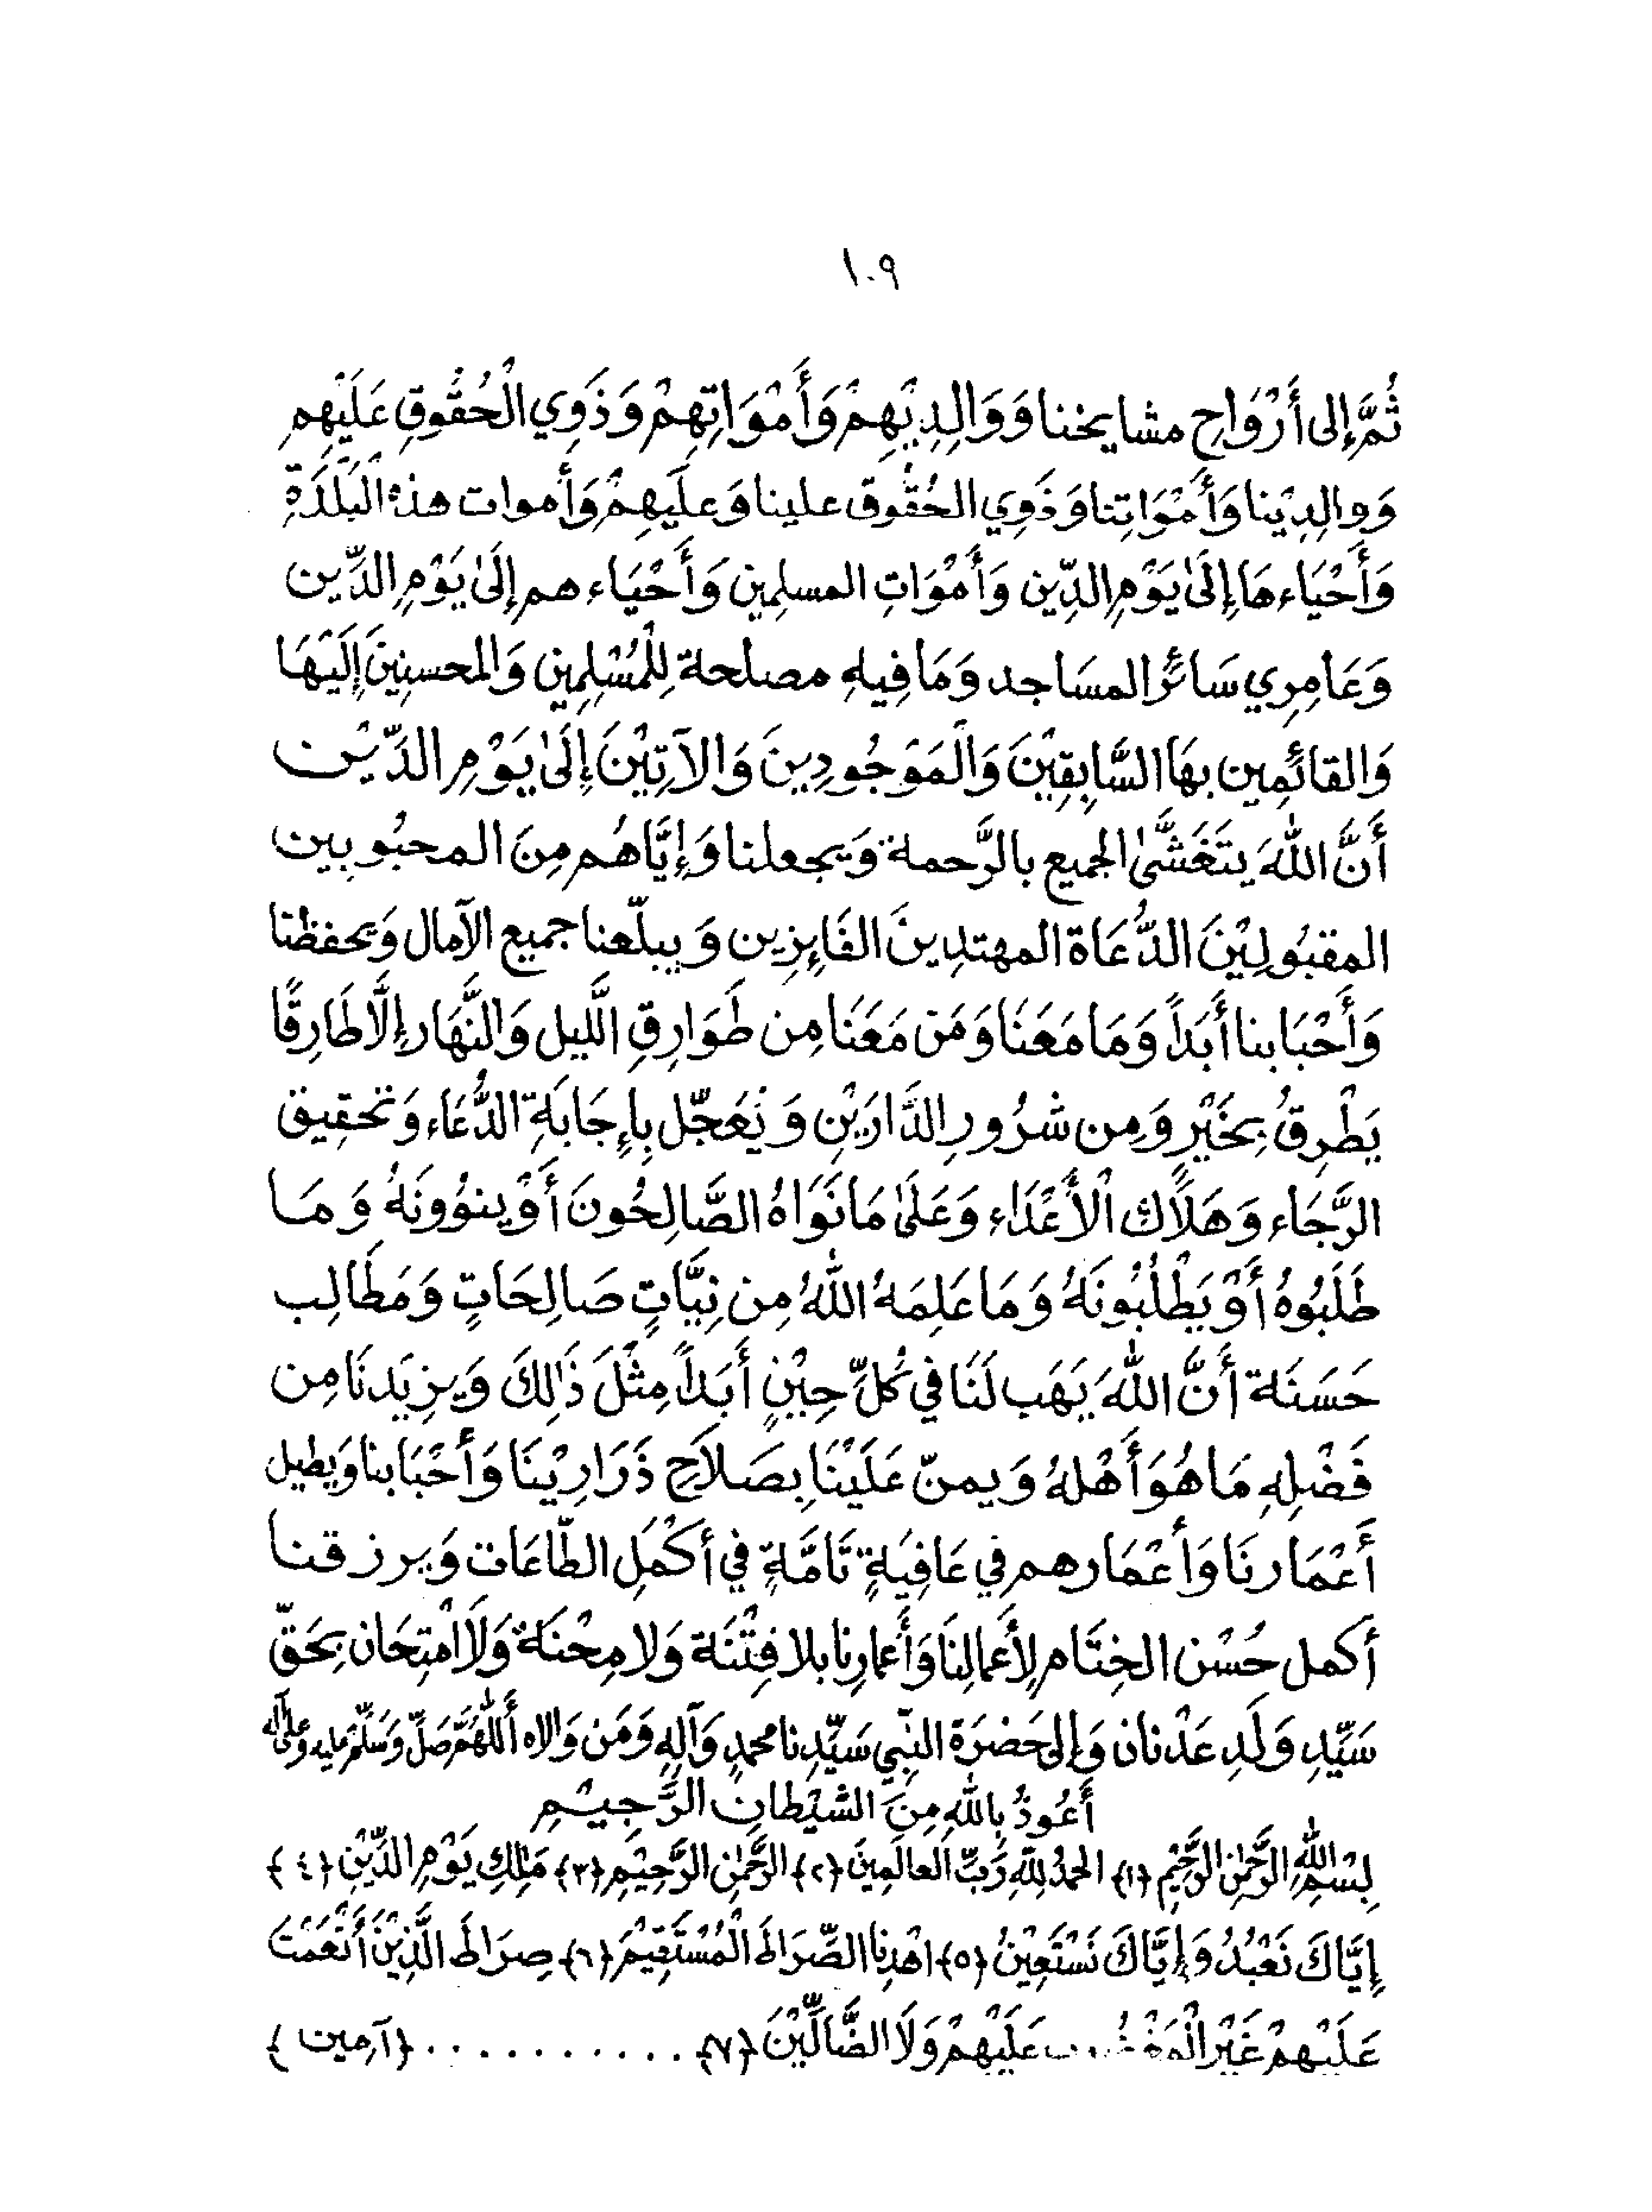 ١٠٩
ثُمَّ إِلى أَرْوَاحِ مشايخنا وَوَالِدِيْهِمْ وَأَمْوَاتِهِمْ وَذَوِي الْحُقُوقِ عَلَيْهِمْ
وَوالِدِيْنا وَأَمْوَاتِنا وَذَوِي الحُقُوق علينا وَعلَيهِمْ وَأَموات هذه الْبَلْدَةِ
وَأَحْيَاءهَا إِلَىٰ يَوْمِ الدِّين وَأَمْوَاتِ المسلِمِين وَأَحْيَاءهم إِلَىٰ يَوْمِ الدِّين
وَعَامِرِي سَائرُ المسَاجد وَمَا فِيهِ مصلحة لِلْمُسْلِمِين وَالمحسنِينَ إِلَيْهَا
وَالقائمِين بهَا السَّابِقِيْنَ وَالْمَوْجُودِينَ وَالآتِيْنَ إِلَىٰ يَوْمِ الدِّيْن
أَنَّ اللهَ يتَغَشَّىٰ الجميع بالرَّحمة وَيجعلنا وَإِيَّاهُم مِنَ المحبُوبِين
المقبُولِيْنَ الدُّعَاة المهتدِينَ الفَايِزِين وَيبلّغنا جميع الآمال وَيحفظنا
وَأَحْبَابنا أَبَداً وَمَا مَعَنَا وَمَن مَعَنَا مِن طَوَارِقِ اللَّيل وَالنَّهَار إِلَّا طَارِقًا
يَطْرِقُ بِخَيْرٍ وَمِن شرُورِ الدَّارَيْنِ وَنُعَجّل بِإِجَابَةِ الدُّعَاء وَتحقِيق
الرَّجَاء وَهَلَاك الْأَعْدَاء وَعَلَىٰ مَا نَوَاهُ الصَّالِحُونَ أَوْ ينوُونَهُ وَمَا
طَلَبُوهُ أَوْ يَطْلُبُونَهُ وَمَا عَلِمَهُ اللهُ مِن نِيَّاتٍ صَالِحَاتٍ وَمَطَالِب
حَسَنَة أَنَّ اللهَ يَهَب لَنَا في كُلِّ حِيْنٍ أَبَداً مِثْلَ ذَالِكَ وَيزِيدنَا مِن
فَضْلِهِ مَا هُوَ أَهْلهُ وَيمنّ عَلَيْنَا بصَلَاحِ ذَرَارِيْنَا وَأَحْبَابنا وَيطِيل
أَعْمَارنَا وَأَعْمَارهم في عَافِيَةٍ تَامَّةٍ في أَكْمَلِ الطّاعَات وَيرزقنا
أكمل حُسْن الخِتَام لِأَعمالِنَا وَأَعمارِنا بلا فِتْنَة وَلا مِحْنَة وَلَا امْتِحَان بحَقّ
سَيِّدِ وَلَدِ عَدْنان وَإِلى حَضْرَة النَّبِي سَيِّدِنا محمدٍ وَآلِهِ وَمَن وَالاه أَللّٰهُمَّ صَلِّ وَسَلِّمْ عليه وعلىٰ آله
أَعُوذُ بِاللهِ مِنَ الشيْطانِ الرَّجِيْمِ
بِسْمِ اللهِ الرَّحْمٰنِ الرَّحِيْمِ ﴿١﴾ الحمدُ لِلّٰهِ رَبِّ العالَمِينَ ﴿٢﴾ الرَّحْمٰنِ الرَّحِيْمِ ﴿٣﴾ مَالِكِ يَوْمِ الدِّيْنِ ﴿٤﴾
إِيَّاكَ نَعْبُدُ وَإِيَّاكَ نَسْتَعِيْنُ ﴿٥﴾ اهْدِنا الصِّرَاطَ الْمُسْتَقِيْمَ ﴿٦﴾ صِرَاطَ الَّذِيْنَ أَنْعَمْتَ
عَلَيْهِمْ غَيْرِ عَلَيْهِمْ وَلَا الضَّالِّيْنَ ﴿٧﴾ ........... ﴿آمِين﴾